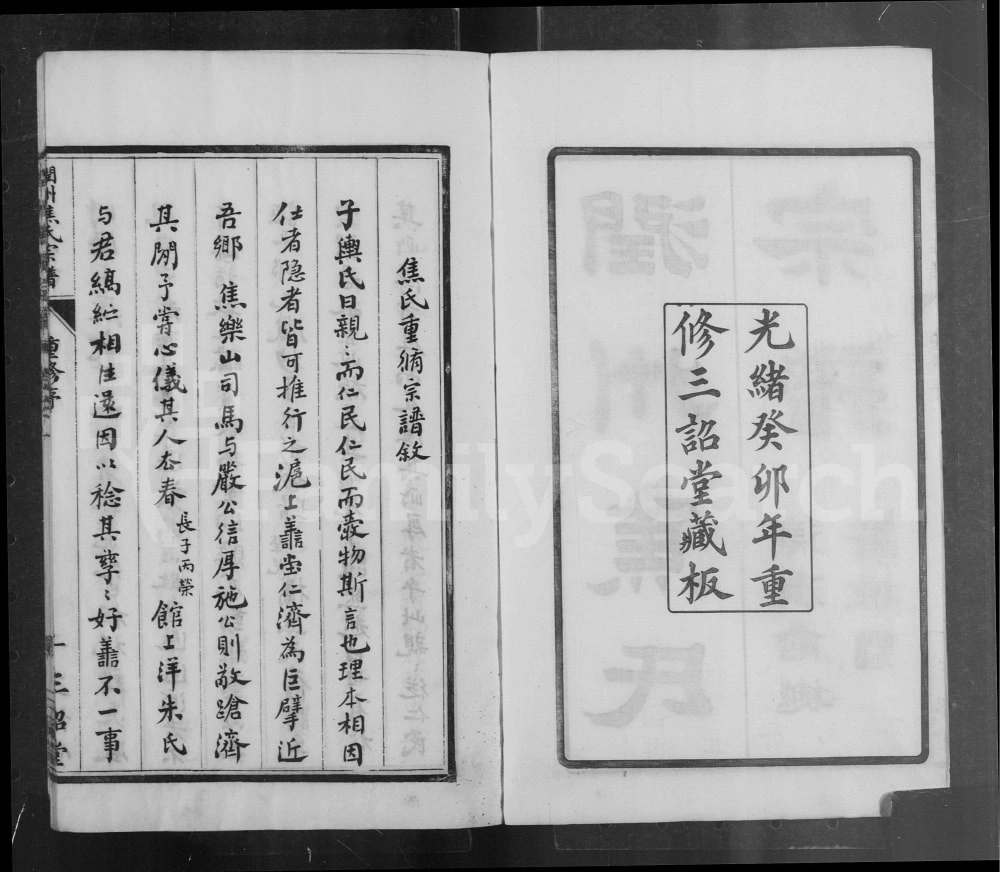 光緒癸卯年重
修三詔堂藏板
焦氏重脩宗譜敘
子輿氏曰親〻而仁民仁民而愛物斯言也理本相因
仕者隐者皆可推行之滬上善堂仁濟為巨擘近
吾鄉焦樂山司馬与嚴公信厚施公則敬蹌濟
其間予嘗心儀其人本春長子丙榮館上洋朱氏
与君縞紵相往還因以稔其孳〻好善不一事
潤州焦氏宗譜 重修序 一 三詔堂
FamilySearch